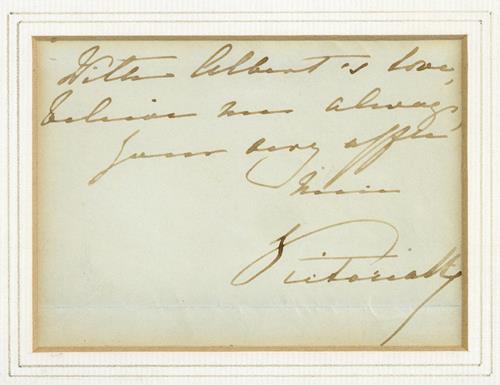 With Albert's love,
believe me always,
Your very affte
Niece
VictoriaR